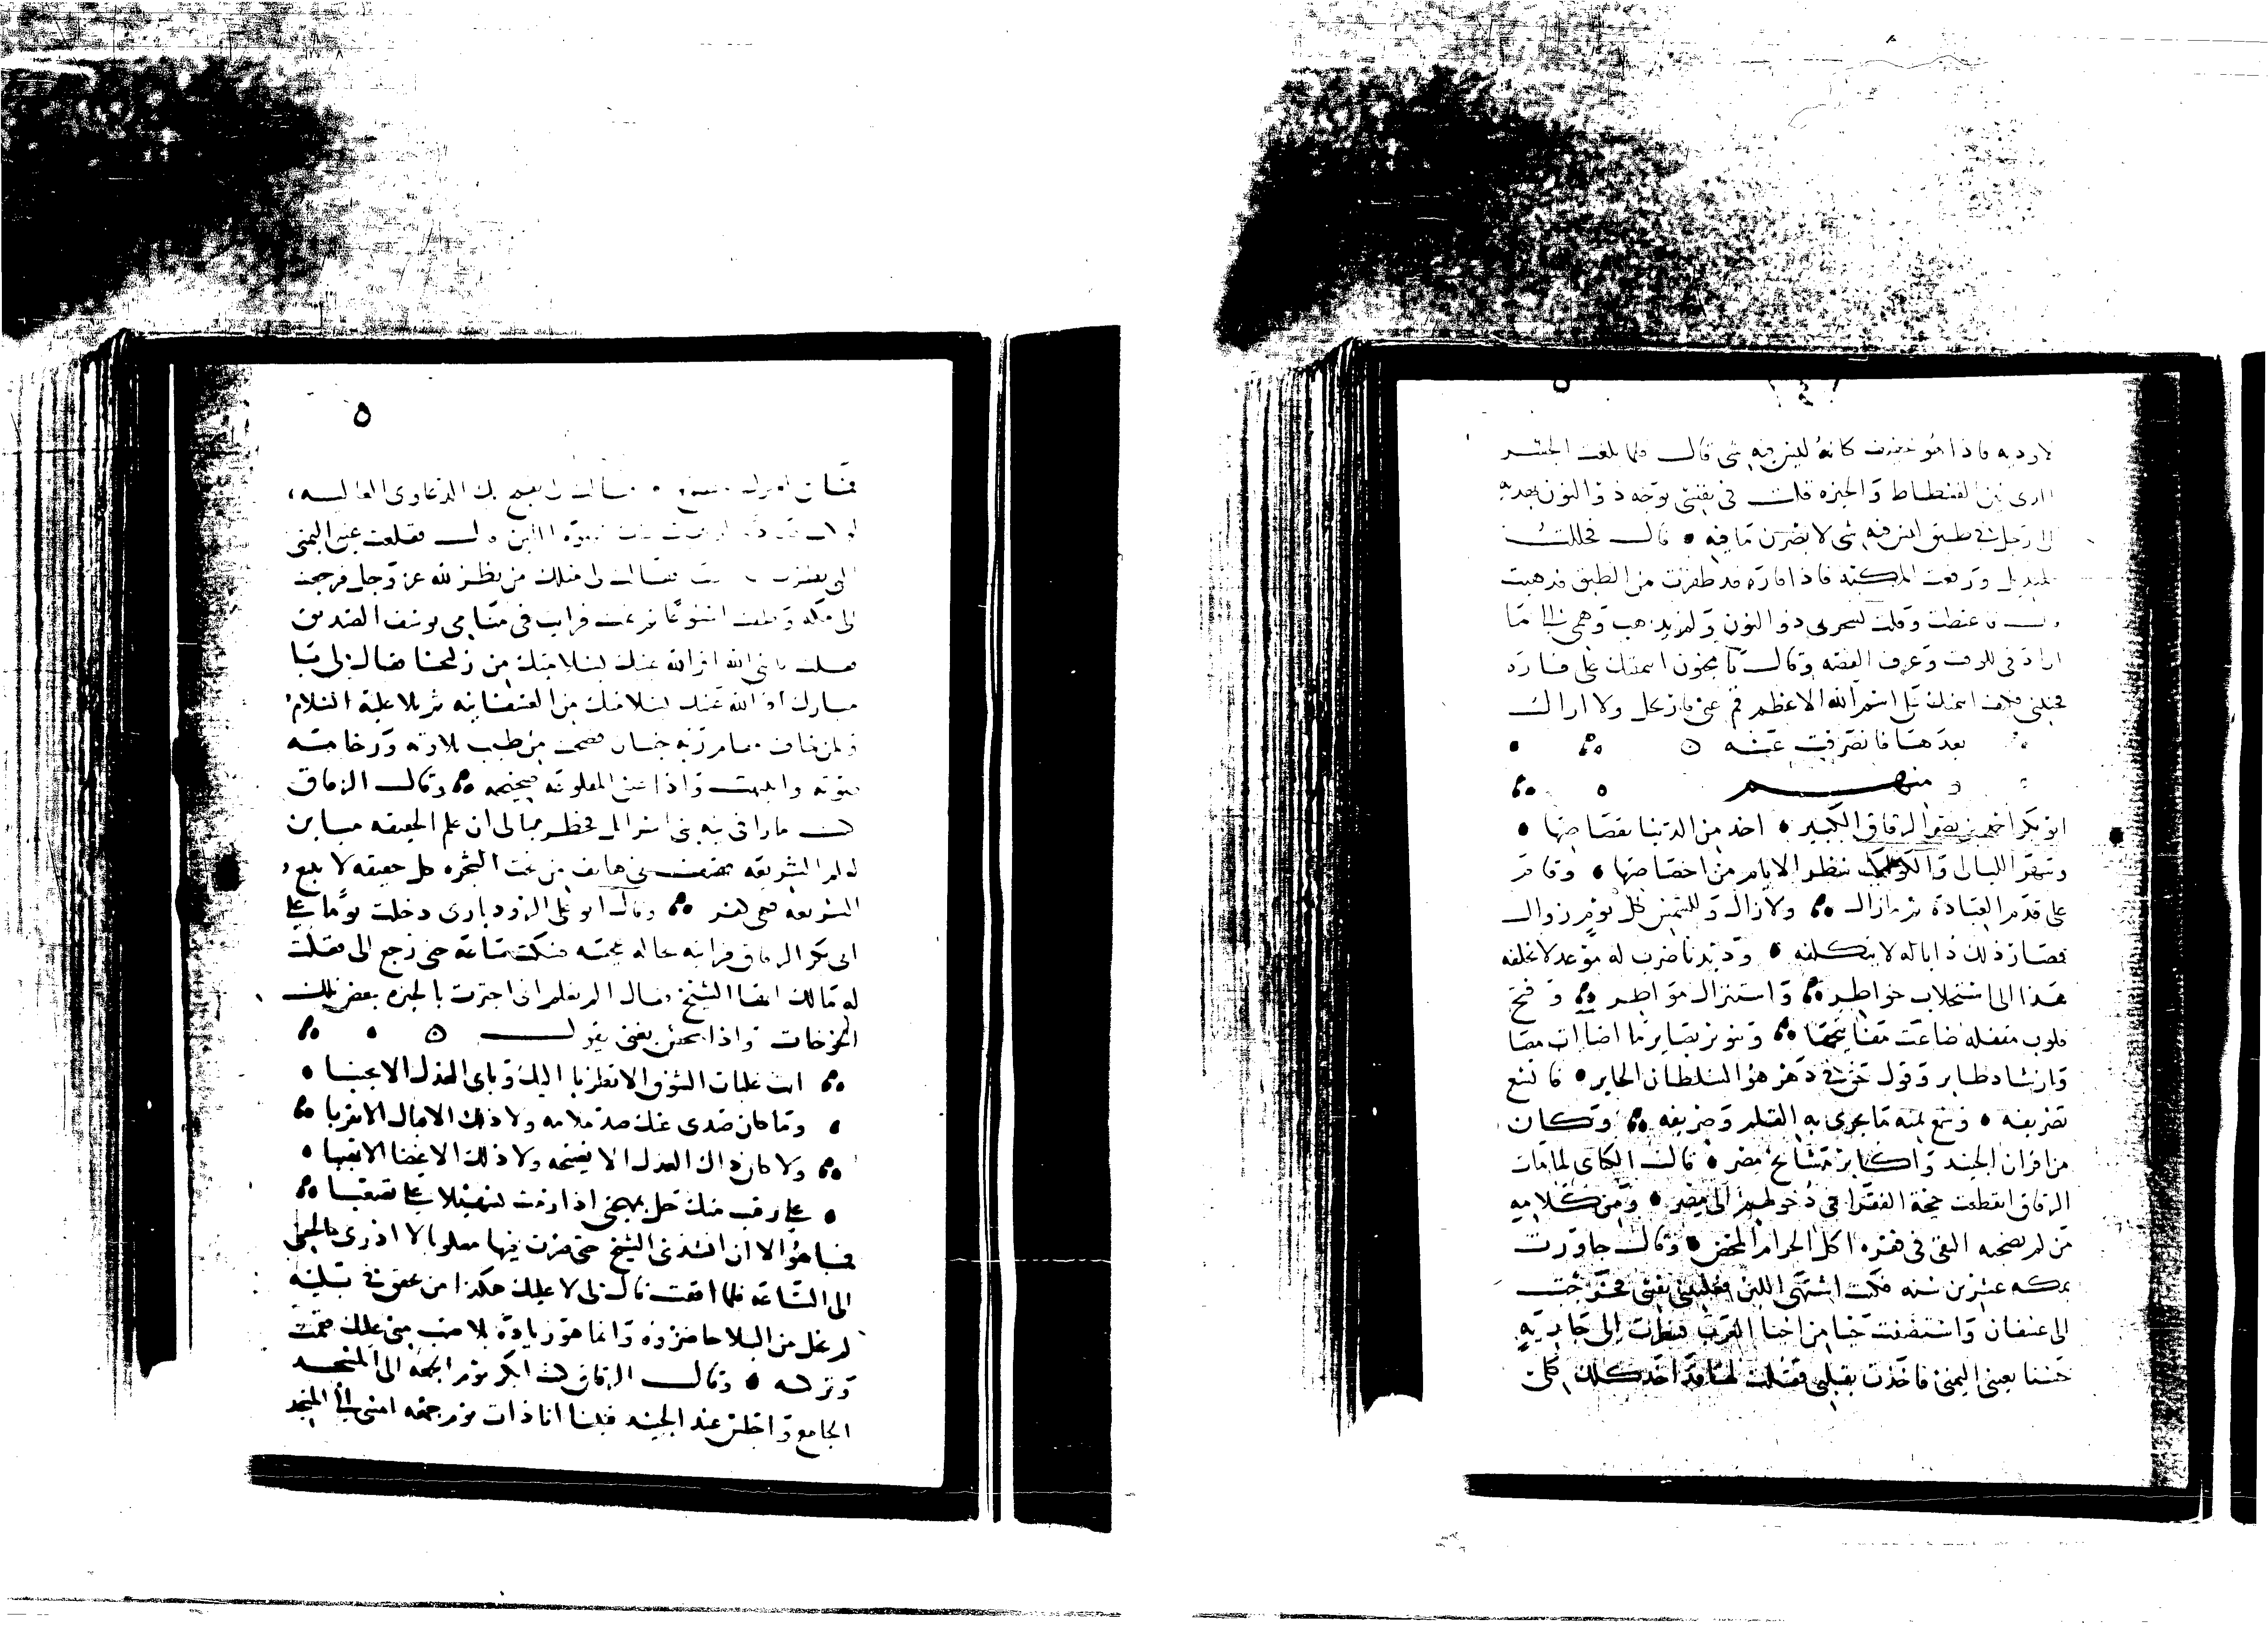 لارد به فاذا هو خفيف كانه ليس فيه شى قال فلما بلغت الجسر
الذى بين الفسطاط والجيزه قلت فى نفسى يوجه ذو النون بهديه
الى رجل فى طبق ليس فيه شى لابصرن ما فيه قال فحللت
المنديل ورفعت المكبه فاذا فاره قد طفرت من الطبق فذهبت
فاغتظت وقلت يسخر بى ذو النون ولم يذهب وهمى الى ما
اراد فى الوقت وعرف القصه وقال يا مجنون ائتمنتك على فاره
فخنتنى فكيف ائتمنك على اسم الله الاعظم قم عنى فارتحل ولا اراك
بعد هذا فانصرفت عنه
ومنهم
ابو بكر احمد بن نصر الزقاق الكبير اخذ من الدنيا بقصاصها
وسهر الليالى والكواكب تنظر الايام من اختصاصها وقام
على قدم العباده ثم مازال ولا زال وللشمس كل يوم زوال
فصار ذلك دابا له لا يتكلفه وديدنا ضرب له موعد لا يخلفه
هذا الى استجلاب خواطر واستنزال مواطر وفتح
قلوب مقفله ضاعت مفاتيحها وتنوير بصاير ما اضاات مصا
وارشاد حاير وقول حق فى دهر هو السلطان الجاير
تصريفه وتمع لمنه ما يجرى به القلم وصريفه وكان
من اقران الجنيد واكابر مشايخ مصر قال الكتانى لما مات
الزقاق انقطعت حجة الفقرا فى دخولهم الى مصر ومن كلامه
من لم يصحبه التقى فى فقره اكل الحرام المحض وقال جاورت
بمكه عشرين سنه فكنت اشتهى اللبن فغلبتنى نفسى فخرجت
الى عسفان واستضفت حيا من احيا العرب فنظرت الى جاريه
حسنا بعينى اليمنى فاخذت بقلبى فقلت لها قد اخذ كلك كلى
٥
الدعاوى العاليه
فقلعت عينى اليمنى
فقالت لى مثلك من نظر لله عز وجل فرجعت
الى مكه وطفت اسبوعا ثم نمت فرايت فى منامى يوسف الصديق
فقلت يا نبى الله اقر الله عينك بسلامتك من زليخا فقال لى يا
مبارك اقر الله عينك بسلامتك من العسفانيه ثم تلا عليه السلام
ولمن خاف مقام ربه جنتان فصحت من طيب تلاوته ورخامة
صوته وانتبهت واذا عينى المقلوعه صحيحه وقال الزقاق
كنت مارا فى تيه بنى اسرائيل فخطر ببالى ان علم الحقيقه مباين
لعلم الشريعه فهتف بى هاتف من تحت الشجره كل حقيقه لا تتبع
الشريعه فهى كفر وقال ابو على الروذبارى دخلت يوما على
ابى بكر الزقاق فرايته بحاله عجيبه فمكثت ساعه حتى رجع الى فقلت
له مالك ايها الشيخ فقال الم تعلم انى اجتزت بالجيزه ببعض تلك
الخوخات واذا شخص يغنى يقول
ابت غلبات الشوق الا تطربا اليك ويابى العذل الا تجنبا
وما كان صدى عنك صد ملامه ولا ذلك الاقبال الا تقربا
ولا كان ذاك العذل الا نصيحه ولا ذلك الاغضا الا تهيبا
على رقيب منك حل بمهجتى اذا رمت تسهيلا على تصعبا
فما هو الا ان انشدنى الشيخ حتى صرت فيها مغلوبا لا ادرى مالحقنى
الى الساعه فلما افقت قال لى لا عليك هكذا من عوفى فى بليته
لم يخل من البلا حاضروه وانما هو زياده بلا صب منى عليك فقمت
وتركته وقال الزقاق كنت ابكر يوم الجمعه الى المسجد
الجامع واجلس عند الجنيد فبينا انا ذات يوم جمعه امشى الى المسجد